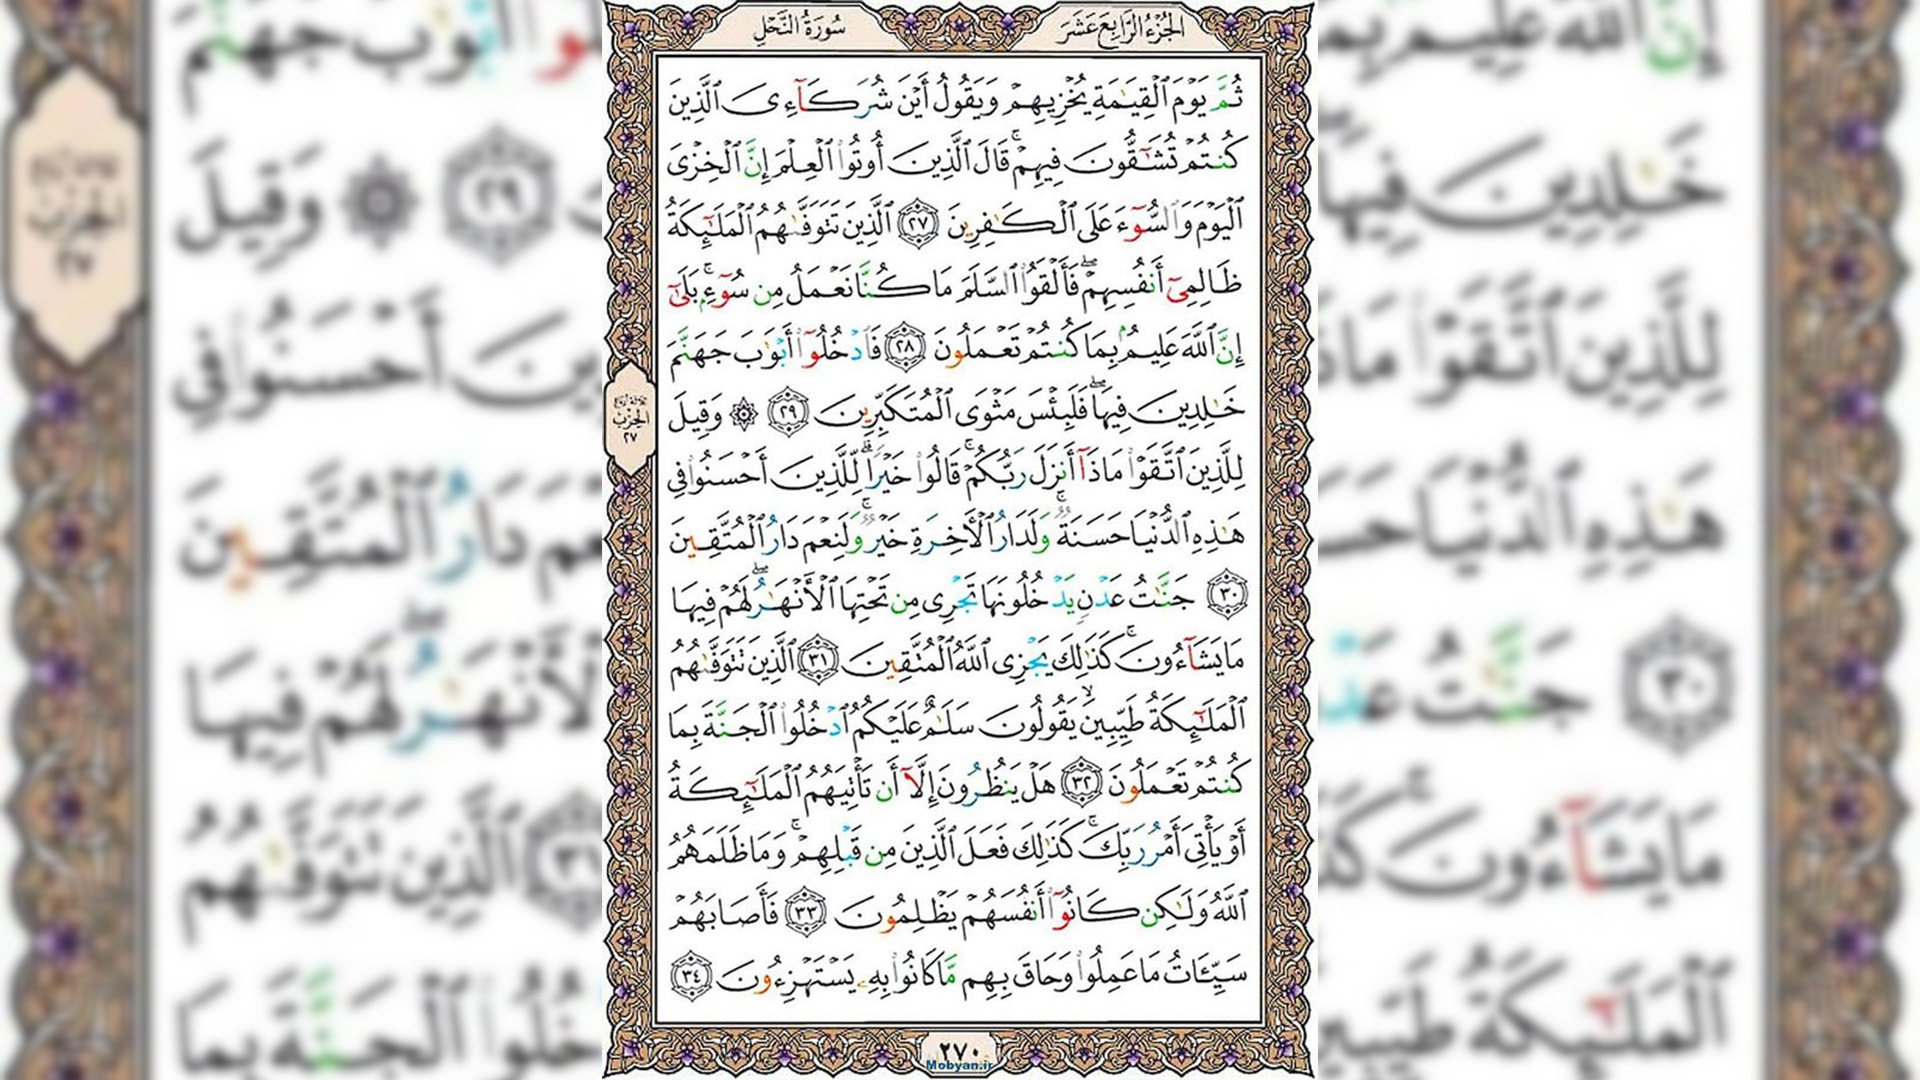 الجُزْءُ الرَّابِعَ عَشَرَ
سُورَةُ النَّحْلِ
ثُمَّ يَوْمَ ٱلْقِيَٰمَةِ يُخْزِيهِمْ وَيَقُولُ أَيْنَ شُرَكَآءِىَ ٱلَّذِينَ
كُنتُمْ تُشَٰٓقُّونَ فِيهِمْ ۚ قَالَ ٱلَّذِينَ أُوتُوا۟ ٱلْعِلْمَ إِنَّ ٱلْخِزْىَ
ٱلْيَوْمَ وَٱلسُّوٓءَ عَلَى ٱلْكَٰفِرِينَ ٢٧ ٱلَّذِينَ تَتَوَفَّىٰهُمُ ٱلْمَلَٰٓئِكَةُ
ظَالِمِىٓ أَنفُسِهِمْ ۖ فَأَلْقَوُا۟ ٱلسَّلَمَ مَا كُنَّا نَعْمَلُ مِن سُوٓءٍۭ ۚ بَلَىٰٓ
إِنَّ ٱللَّهَ عَلِيمٌۢ بِمَا كُنتُمْ تَعْمَلُونَ ٢٨ فَٱدْخُلُوٓا۟ أَبْوَٰبَ جَهَنَّمَ
خَٰلِدِينَ فِيهَا ۖ فَلَبِئْسَ مَثْوَى ٱلْمُتَكَبِّرِينَ ٢٩ ۞ وَقِيلَ
لِلَّذِينَ ٱتَّقَوْا۟ مَاذَآ أَنزَلَ رَبُّكُمْ ۚ قَالُوا۟ خَيْرًا ۗ لِّلَّذِينَ أَحْسَنُوا۟ فِى
هَٰذِهِ ٱلدُّنْيَا حَسَنَةٌ ۚ وَلَدَارُ ٱلْأَخِرَةِ خَيْرٌ ۚ وَلَنِعْمَ دَارُ ٱلْمُتَّقِينَ
٣٠ جَنَّٰتُ عَدْنٍ يَدْخُلُونَهَا تَجْرِى مِن تَحْتِهَا ٱلْأَنْهَٰرُ ۖ لَهُمْ فِيهَا
مَا يَشَآءُونَ ۚ كَذَٰلِكَ يَجْزِى ٱللَّهُ ٱلْمُتَّقِينَ ٣١ ٱلَّذِينَ تَتَوَفَّىٰهُمُ
ٱلْمَلَٰٓئِكَةُ طَيِّبِينَ ۙ يَقُولُونَ سَلَٰمٌ عَلَيْكُمُ ٱدْخُلُوا۟ ٱلْجَنَّةَ بِمَا
كُنتُمْ تَعْمَلُونَ ٣٢ هَلْ يَنظُرُونَ إِلَّآ أَن تَأْتِيَهُمُ ٱلْمَلَٰٓئِكَةُ
أَوْ يَأْتِىَ أَمْرُ رَبِّكَ ۚ كَذَٰلِكَ فَعَلَ ٱلَّذِينَ مِن قَبْلِهِمْ ۚ وَمَا ظَلَمَهُمُ
ٱللَّهُ وَلَٰكِن كَانُوٓا۟ أَنفُسَهُمْ يَظْلِمُونَ ٣٣ فَأَصَابَهُمْ
سَيِّـَٔاتُ مَا عَمِلُوا۟ وَحَاقَ بِهِم مَّا كَانُوا۟ بِهِۦ يَسْتَهْزِءُونَ ٣٤
ثلاثة أرباع
الحزب
٢٧
٢٧٠
Mobyan.ir